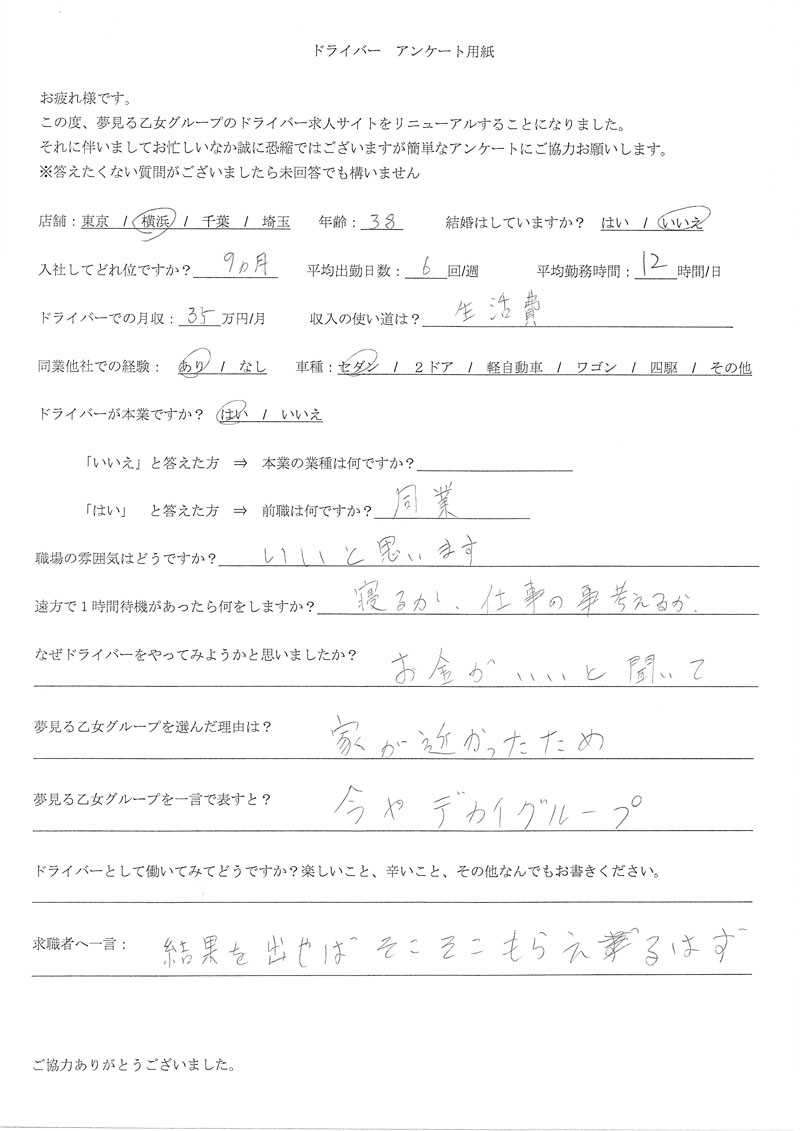 ドライバー　アンケート用紙
お疲れ様です。
この度、夢見る乙女グループのドライバー求人サイトをリニューアルすることになりました。
それに伴いましてお忙しいなか誠に恐縮ではございますが簡単なアンケートにご協力お願いします。
※答えたくない質問がございましたら未回答でも構いません
店舗：東京　/　横浜　/　千葉　/　埼玉　　年齢：38　　結婚はしていますか？　はい　/　いいえ
入社してどれ位ですか？　9ヵ月　　平均出勤日数：6　回/週　　平均勤務時間：12　時間/日
ドライバーでの月収：35　万円/月　　収入の使い道は？　生活費
同業他社での経験：　あり　/　なし　　車種：セダン　/　２ドア　/　軽自動車　/　ワゴン　/　四駆　/　その他
ドライバーが本業ですか？　はい　/　いいえ
「いいえ」と答えた方　⇒　本業の業種は何ですか？
「はい」　と答えた方　⇒　前職は何ですか？　同業
職場の雰囲気はどうですか？　いいと思います
遠方で１時間待機があったら何をしますか？　寝るか、仕事の事考えるか、
なぜドライバーをやってみようかと思いましたか？　お金がいいと聞いて
夢見る乙女グループを選んだ理由は？　家が近かったため
夢見る乙女グループを一言で表すと？　今やデカイグループ
ドライバーとして働いてみてどうですか？楽しいこと、辛いこと、その他なんでもお書きください。
求職者へ一言：　結果を出せばそこそこもらえるはず
ご協力ありがとうございました。